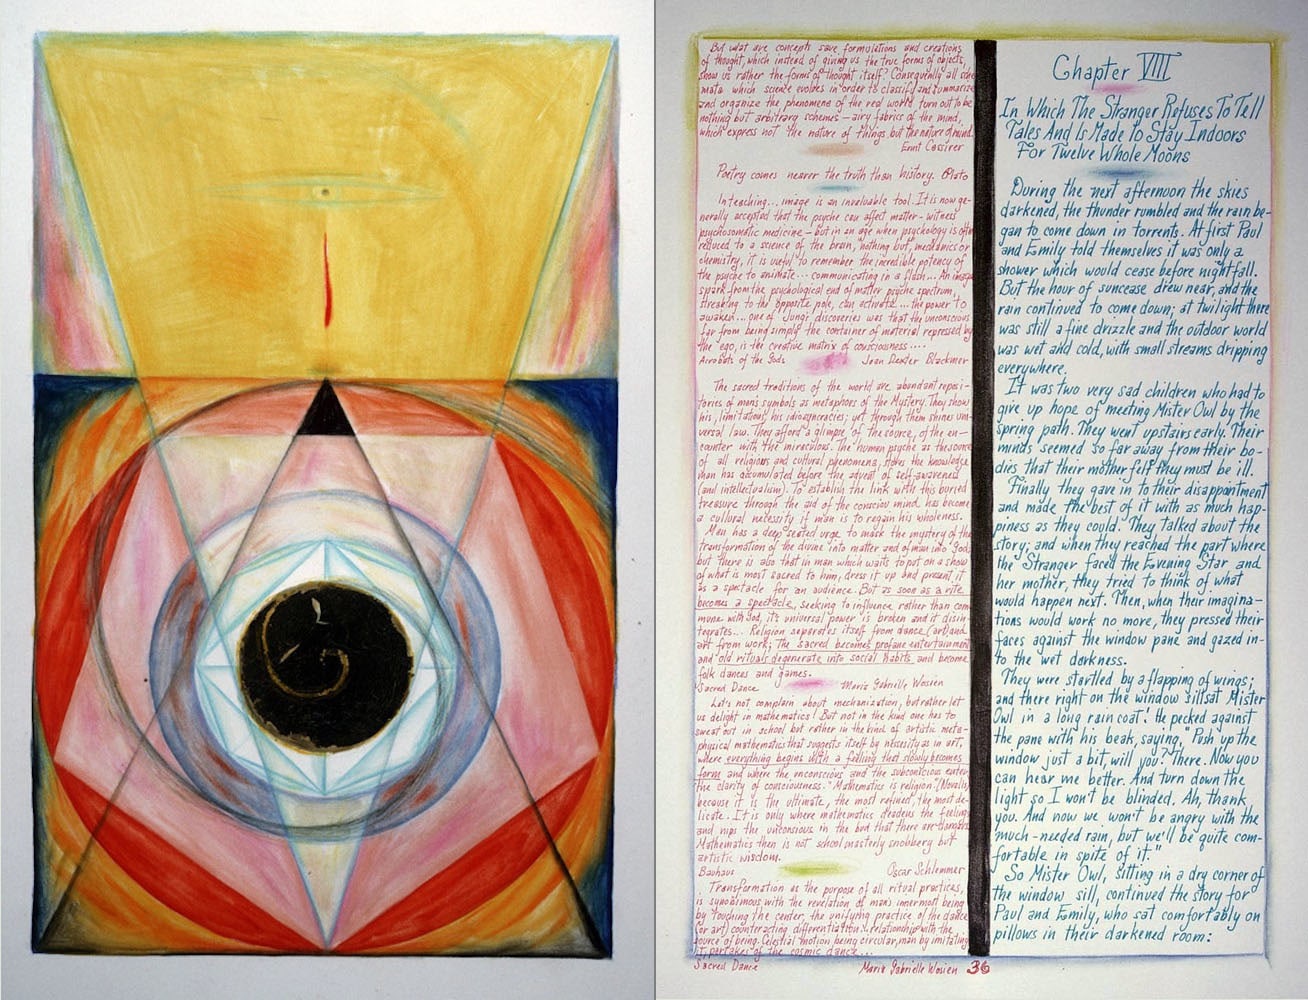 But what are concepts save formulations and creations
of thought, which instead of giving us the true forms of objects,
show us rather the forms of thought itself? Consequently all sche
mata which science evolves in order to classify and summarize
and organize the phenomene of the real world turn out to be
nothing but arbitrary schemes – airy fabrics of the mind,
which express not the nature of things, but the nature of mind.
Ernst Cassirer
Poetry comes nearer the truth than history. Plato
In teaching... image is an invaluable tool. It is now ge-
nerally accepted that the psyche can affect matter – witness
psychosomatic medicine – but in an age when psychology is often
reduced to a science of the brain, nothing but mechanics or
chemistry, it is useful to remember the incredible potency of
the psyche to animate... communicating in a flash... An image
spark from the psychological end of matter psyche spectrum,
streaking to the opposite pole, can activate... the power to
awaken... one of Jung's discoveries was that the unconscious
far from being simply the container of material repressed by
the ego, is the creative matrix of consciousness....
Acrobats of the Gods Joan Dexter Blackmer
The sacred traditions of the world are abundant reposi-
tories of man's symbols as metaphores of the Mystery. They show
his limitations, his idiosyncracies; yet through them shines uni-
versal law. They afford a glimpse of the source, of the en-
counter with the miraculous. The human psyche as the source
of all religious and cultural phenomena, stores the knowledge
man has accumulated before the advent of self-awareness
(and intellectualism). To establish the link with this buried
treasure through the aid of the conscious mind has become
a cultural necessity if man is to regain his wholeness.
Man has a deep seated urge to mask the mystery of the
transformation of the divine into matter and of man into God;
but there is also that in man which waits to put on a show
of what is most sacred to him, dress it up and present it
as a spectacle for an audience. But as soon as a rite
becomes a spectacle, seeking to influence rather than com
mune with God, it's universal power is broken and it disin-
tegrates... Religion separates itself from dance (art) and
art from work; The sacred becomes profane entertainment
and old rituals degenerate into social habits and become
folk dances and games.
Sacred Dance Maria Gabrielle Wosien
Let's not complain about mechanization, but rather let
us delight in mathematics! But not in the kind one has to
sweat out in school but rather in the kind of artistic meta-
physical mathematics that suggests itself by necessity as in art,
where everything begins with a feeling that slowly becomes
form and where the unconscious and the subconscious enter
the clarity of consciousness. "Mathematics is religion" (Novalis)
because it is the ultimate, the most refined, the most de-
licate. It is only where mathematics deadens the feeling
and nips the unconsious in the bud that there are dangers
Mathematics then is not schoolmasterly snobbery but
artistic wisdom.
Bauhaus Oscar Schlemmer
Transformation as the purpose of all ritual practices,
is synonimous with the revelation of man's innermost being
by touching the center, the unifying practice of the dance
(or art) counteracting differentiation: relationship with the
source of being. Celestial motion being circular, man by imitating
it partakes of the cosmic dance...
Sacred Dance Maria Gabrielle Wosien 36
Chapter VIII
In Which The Stranger Refuses To Tell
Tales And Is Made To Stay Indoors
For Twelve Whole Moons
During the next afternoon the skies
darkened, the thunder rumbled and the rain be-
gan to come down in torrents. At first Paul
and Emily told themselves it was only a
shower which would cease before nightfall.
But the hour of suncease drew near, and the
rain continued to come down; at twilight there
was still a fine drizzle and the outdoor world
was wet and cold, with small streams dripping
everywhere.
It was two very sad children who had to
give up hope of meeting Mister Owl by the
spring path. They went upstairs early. Their
minds seemed so far away from their bo-
dies that their mother felt they must be ill.
Finally they gave in to their disappointment
and made the best of it with as much hap-
piness as they could. They talked about the
story; and when they reached the part where
the Stranger faced the Evening Star and
her mother, they tried to think of what
would happen next. Then, when their imagina-
tions would work no more, they pressed their
faces against the window pane and gazed in-
to the wet darkness.
They were startled by a flapping of wings;
and there right on the window sill sat Mister
Owl in a long rain coat! He pecked against
the pane with his beak, saying, "Push up the
window just a bit, will you? There. Now you
can hear me better. And turn down the
light so I won't be blinded. Ah, thank
you. And now we won't be angry with the
much-needed rain, but we'll be quite com-
fortable in spite of it."
So Mister Owl, sitting in a dry corner of
the window sill, continued the story for
Paul and Emily, who sat comfortably on
pillows in their darkened room: